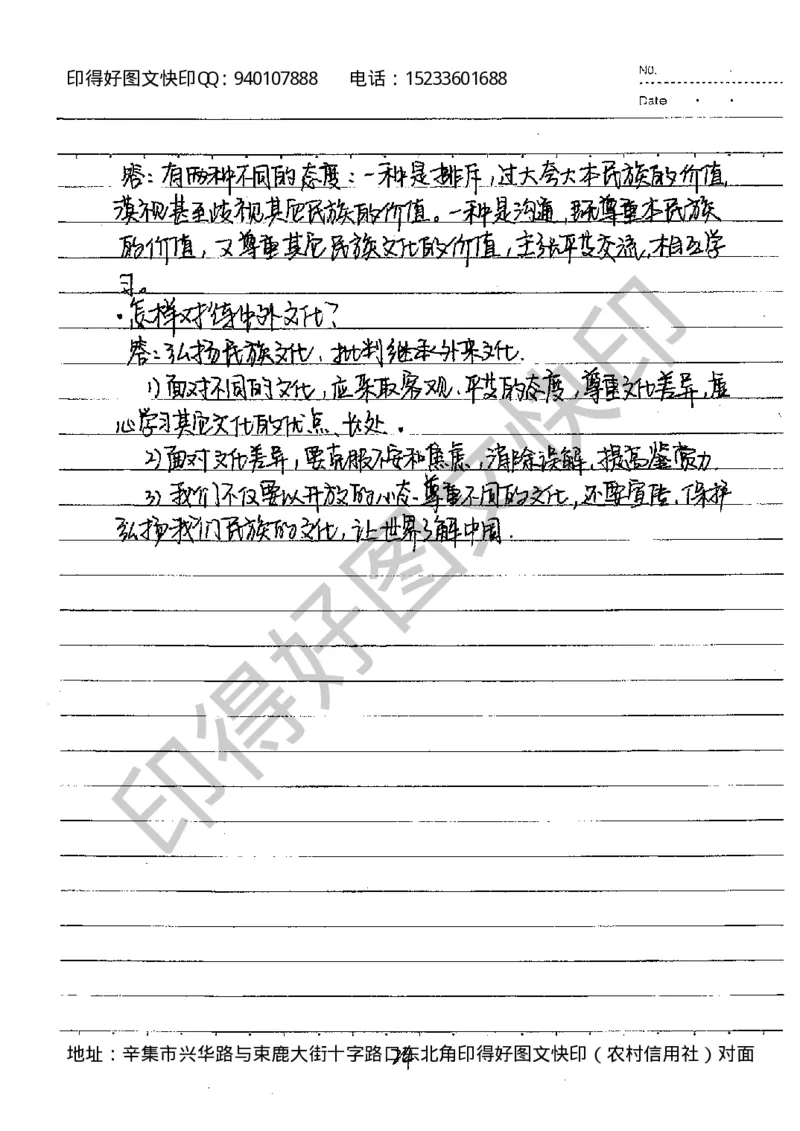 印得好图文快印QQ：940107888 电话：15233601688
No.
Date
答：有两种不同的态度：一种是排斥，过大夸大本民族的价值，
漠视甚至歧视其他民族的价值。一种是沟通，既尊重本民族
的价值，又尊重其他民族文化的价值，主张平等交流，相互学
习。
·怎样对待中外文化？
答：弘扬民族文化，批判继承外来文化.
1)面对不同的文化，应采取客观、平等的态度，尊重文化差异，虚
心学习其他文化的优点、长处。
2)面对文化差异，要克服不安和焦虑，消除误解，提高鉴赏力.
3)我们不仅要以开放的心态尊重不同的文化，还要宣传、保护
弘扬我们民族的文化，让世界了解中国.
印得好图文快印
地址：辛集市兴华路与束鹿大街十字路口东北角印得好图文快印（农村信用社）对面
24